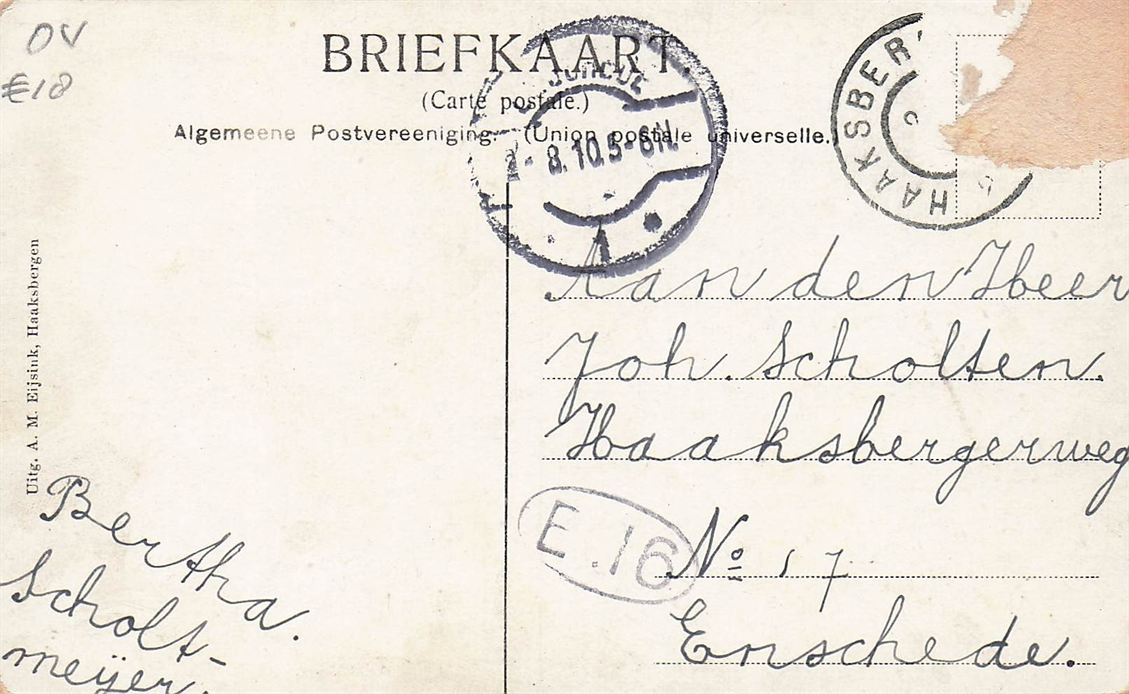 OV
€18
BRIEFKAART
(Carte postale.)
Algemeene Postvereeniging. (Union postale universelle.)
8.10.5-6N
1
HAAKSBER
Uitg. A. M. Eijsink, Haaksbergen
Aan den Heer
Joh. Scholten.
Haaksbergerweg
E.16
No 17
Enschede.
Bertha.
Scholt-
meijer.